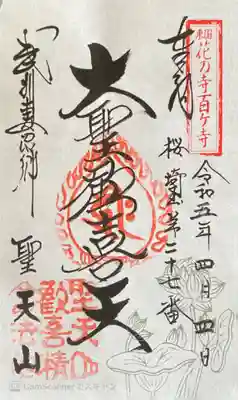 東国花の寺百ヶ寺
令和五年四月四日
奉拝
桜 第二十七番
大聖歓喜天
武州妻沼郷
聖天山
聖天山
歓喜院
CamScanner でスキャン